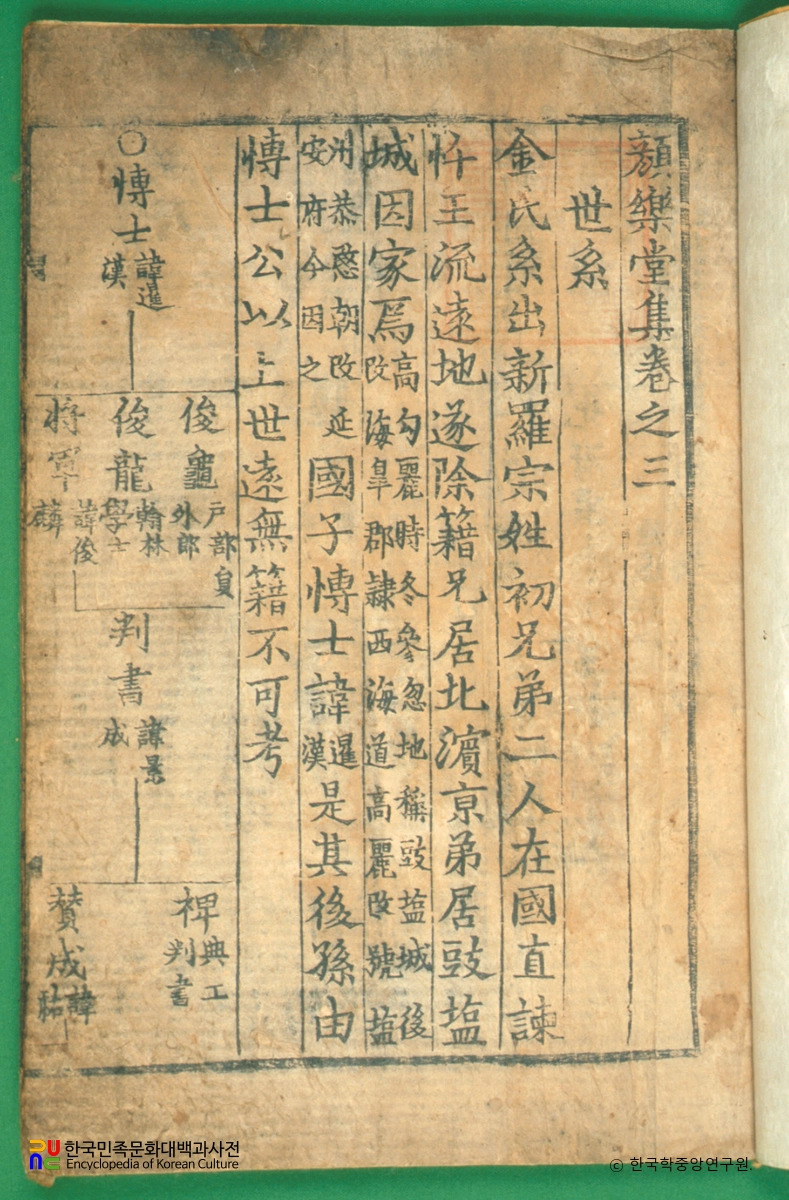 顔樂堂集卷之三
世系
金氏系出新羅宗姓初兄弟二人在國直諫
忤王流遠地遂除籍兄居北濱京弟居豉塩
城因家焉高勾麗時冬參忽地稱豉塩城後
改海皐郡隷西海道高麗改號塩
州恭愍朝改延
安府今因之
國子博士諱暹漢是其後孫由
博士公以上世遠無籍不可考
○博士諱暹漢
俊龜戶部員外郎
俊龍翰林學士
將軍諱俊麟
判書諱景成
裨典工判書
賛成諱祐
한국민족문화대백과사전
Encyclopedia of Korean Culture
© 한국학중앙연구원.